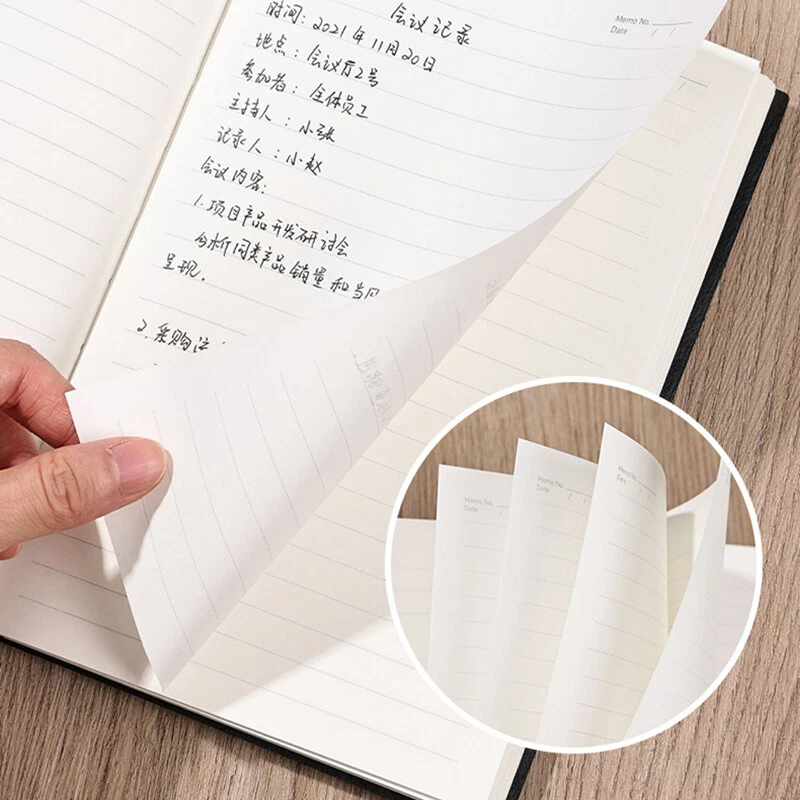 会议记录
Memo No.
Date / /
时间：2021年11月20日
地点：会议厅2号
参加者：全体员工
主持人：小张
记录人：小赵
会议内容：
1.项目产品开发研讨会
分析同类产品销量和当
呈现.
2.采购
Memo No.
Date / /
Memo No.
Date / /
Memo No.
Date / /